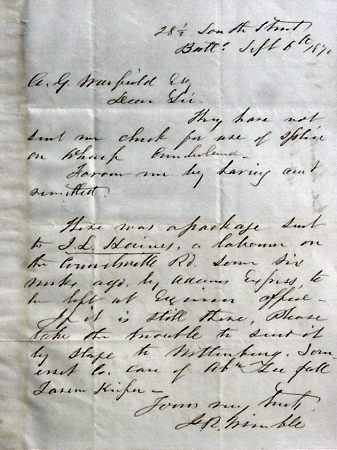 28½ South Street
Balto Sept 6th 1870
A. G. Warfield Esq
Dear Sir
They have not
sent me check for use of office
on wharf Cumberland
Favour me by having amt
remitted.
There was a package sent
to J. L. Haines, a labourer on
the Connelsville Rd some six
weeks ago, by Adams Express, to
be left at office
If it is still there, Please
take the trouble to send it
by stage to Som
erset Co. care of Abm Lee
Tavern Keeper
Yours very truly
J R Trimble